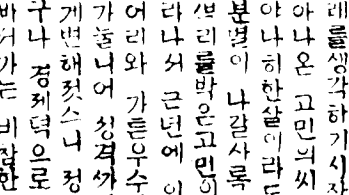 래를생각하기시작
아나온 고민의씨
야나히한살이라도
분별이 나갈사록
뿌리를박은고민이
라나서 근년에 이
어리와 가튼우수
가눌니어 성격까
게변해젓스니 정
구나 경제덕으로
바더가는 비참한